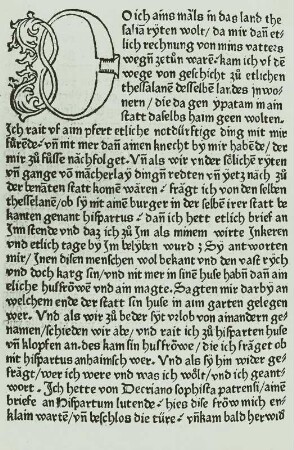 DO ich ains mals in das land the
salia ryten wolt/ da mir dañ et-
lich rechnung von mins vatters
wegñ zetůn warē. kam ich vf dē
wege von geschicht zů etlichen
thessalanē desselbē landes inwo
nern/ die da gen ypatam main
statt daselbs haim geen wolten.
Ich rait vf aim pfert etliche notdürftige ding mit mir
fürēde. vñ mit mer dañ ainen knecht by mir habēde/ der
mir zů füsse nachfolget. Vñ als wir vnder sölichē rytēn
vñ gange vō mächerlay dingñ redten vñ yetz nach zů
der benātten statt komē wären/ frägt ich von den selben
thesselanē/ ob sy mit ainē burger in der selbē irer statt be
kanten genant hispartus. dañ ich hett etlich brief an
Im stende vnd daz ich zů im als minem wirte Inkeren
vnd etlich tage by Im belybten wurd; Sy antworten
mir/ Inen disen menschen wol bekant vnd den vast rych
vnd doch karg sin/ vnd mit mer in sinē huse habñ dañ ain
eliche husfröwē vnd ain magte. Sagten mir darby an
welchem ende der statt sin huse in aim garten gelegen
wer. Vnd als wir zů beder syt vrlob von ainandern ge-
namen/ schieden wir abe/ vnd rait ich zů hisparten huse
vñ klopfen an. des kam sin husfröwe/ die ich fräget ob
mit hispartus anhaimsch wer. Vnd als sy hin wider ge-
frägt/ wer ich were vnd was ich wölt/ vnd ich geant-
wort. Ich hette von Decriano sophista patrensi/ ainē
briefe an Hispartum lutende. hies dise fröw mich en-
klain wartē/ vñ beschlos die türe. vñ kam bald herwid